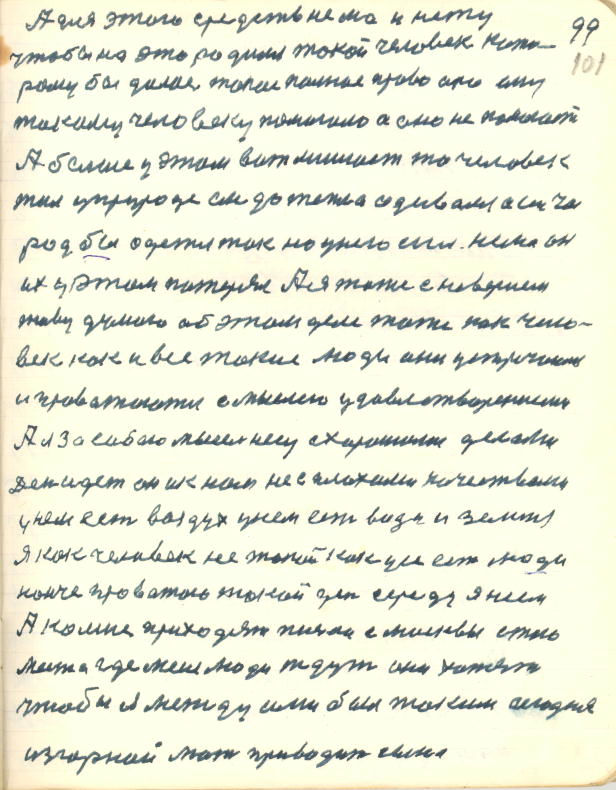 А для этого средств нема и нету 99
чтобы на это родился такой человек кото- 101
рому бы далось такое полное право оно ему
такому человеку помогало а оно не помогает
А больше у этом вот мишает то человек
жил у природе он до тепла одевался
род бы одетия так но у него сил нема он
их у этом потерял А я тоже с неверием
живу думаю об этом деле тоже как чело-
век как и все такие люди они устречают
и проважають с мыслею удавлетворениями
А я за сабою мысль несу с хорошими делами
Ден идет он ик нам не с плохими качествами
у нем ест воздух у нем ест вада и земля
Я как человек не такой как усе ест люди
нонче праважаю такой ден середу я неем
А комне приходят письма с москвы с того
места где мене люди ждут они хотят
чтобы я между ими был таким сегодня
из горной мат приводит сына